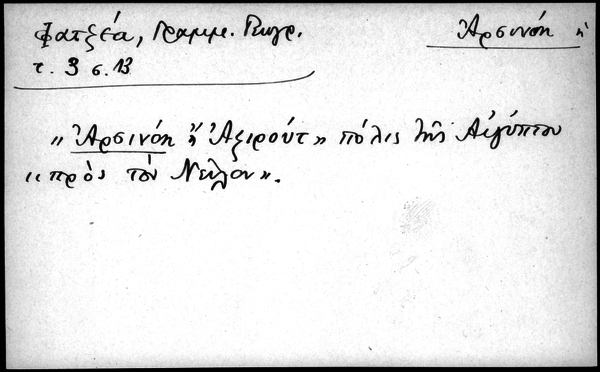 Φατζέα, Γραμμ. Γεωγρ.
Ἀρσινόη ἡ
τ. 3 σ. 13
"Ἀρσινόη ἢ Ἀξιρούτ" πόλις τῆς Αἰγύπτου
"πρὸς τὸν Νεῖλον".